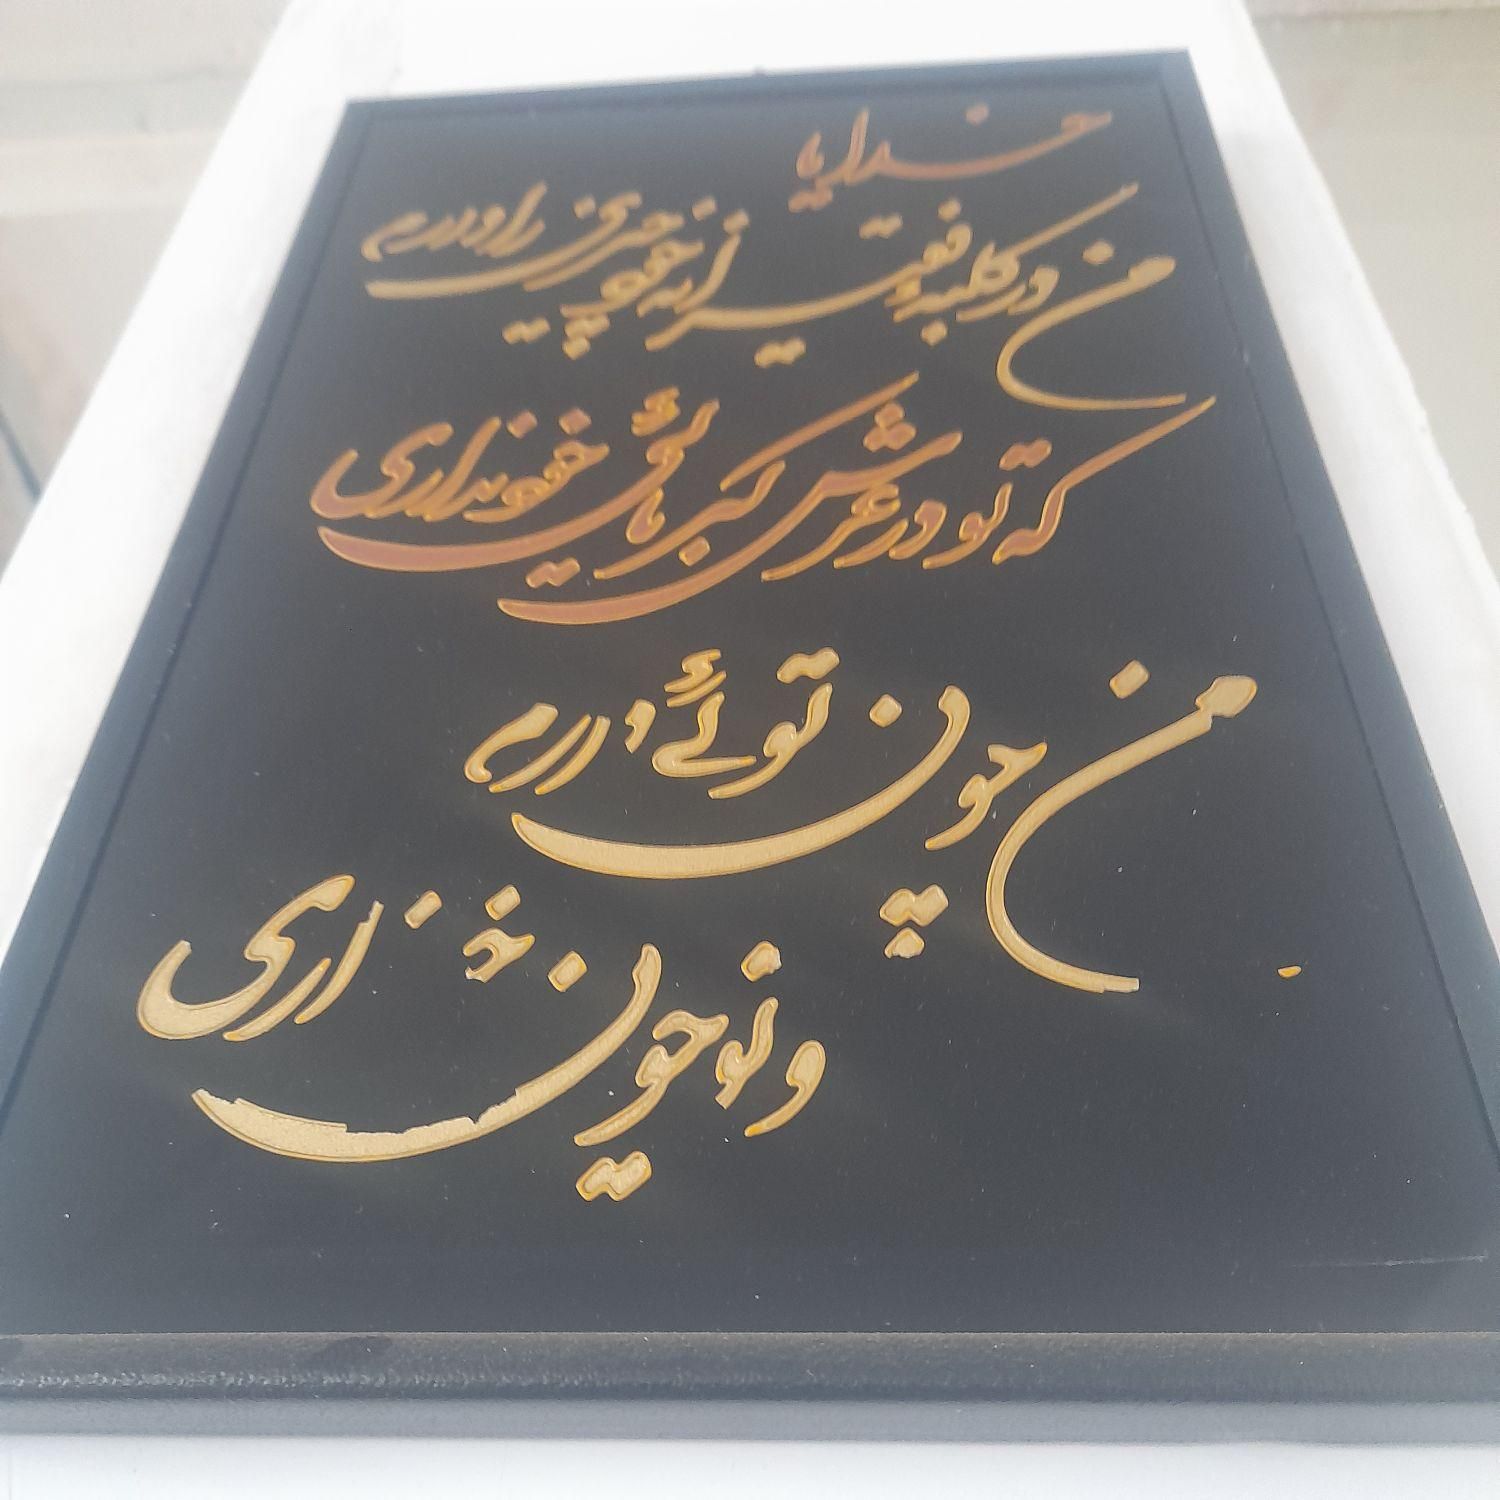 خدایا
من در کلبه فقیرانه خود چیزی را دارم
که تو در عرش کبریائی خود نداری
من چون توئی دارم
و تو چون خود نداری